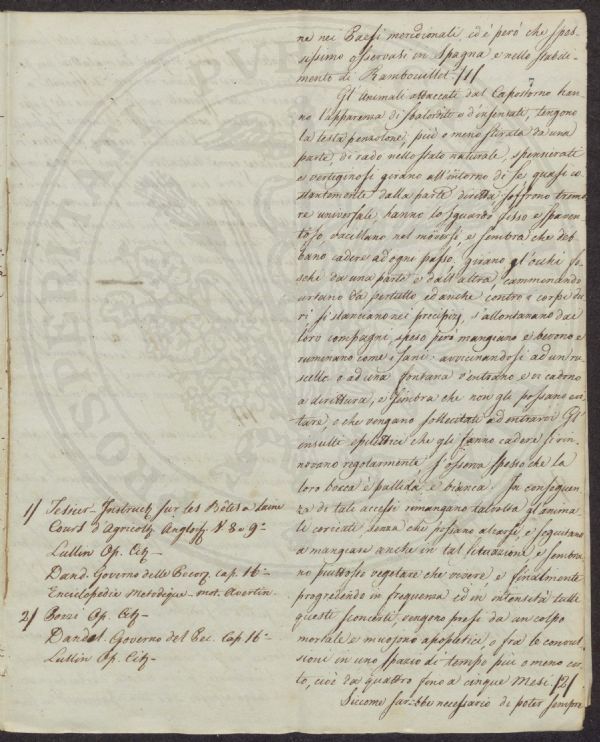 ne nei Paesi meridionali, ed è però che spes-
sissimo osservasi in Spagna e nello stabili-
mento di Rambouillet /1/
7
Gl'animali attaccati dal Capostorno han-
no l'apparenza di sbalorditi o d'insensati, tengono
la testa penzolone, più o meno stirata da una
parte, di rado nello stato naturale, spensierati
e vertiginosi girano all'intorno di se quasi co-
stantemente dalla parte diretta soffrono tremo-
re universale, hanno lo sguardo fisso e spaven-
toso, vacillano nel moversi, e sembra che deb-
bano cadere ad ogni passo, girano gl'occhi fo-
schi da una parte e dall'altra, camminando
urtano da pertutto ed anche contro i corpi du-
ri si slanciano nei precipizj, s'allontanano dai
loro compagni, speso però mangiano e bevono e
ruminano come i sani: avvicinandosi ad un ru-
scello o ad una fontana v'entrano e vi cadono
a direttura, e sembra che non gli possano evi-
tare, o che vengano sollecitati ad entrarvi Gl'
insulti epilettici che gli fanno cadere si rin-
novano regolarmente, s'osserva spesso che la
loro bocca è pallida, e bianca. In conseguen-
za di tali accessi rimangano talvolta gl'anima-
li coricati, senza che possano alzarsi, e seguitano
a mangiare anche in tal situazione e sembra-
no piuttosto vegetare che vivere, e finalmente
progredendo in frequenza ed in intensità tutti
questi sconcerti, vengono presi da un colpo
mortale e muojono apopletici, o fra le convul-
sioni in uno spazio di tempo più o meno cor-
to, cioè da quattro fino a cinque Mesi. /2/
Siccome sarebbe necessario di poter sempre
1/ Tessier - Instruct. sur les Bêtes a laine
Cours d'Agricolt. Angloys N. 8 e 9.
Lullin Op. Cit.
Dand. Governo delle Pecor. Cap. 16.
Enciclopedia Metodique - mot. Avertin.
2/ Bozzi Op. Cit.
Dandol. Governo del Pec. Cap 16.
Lullin Op. Cit.